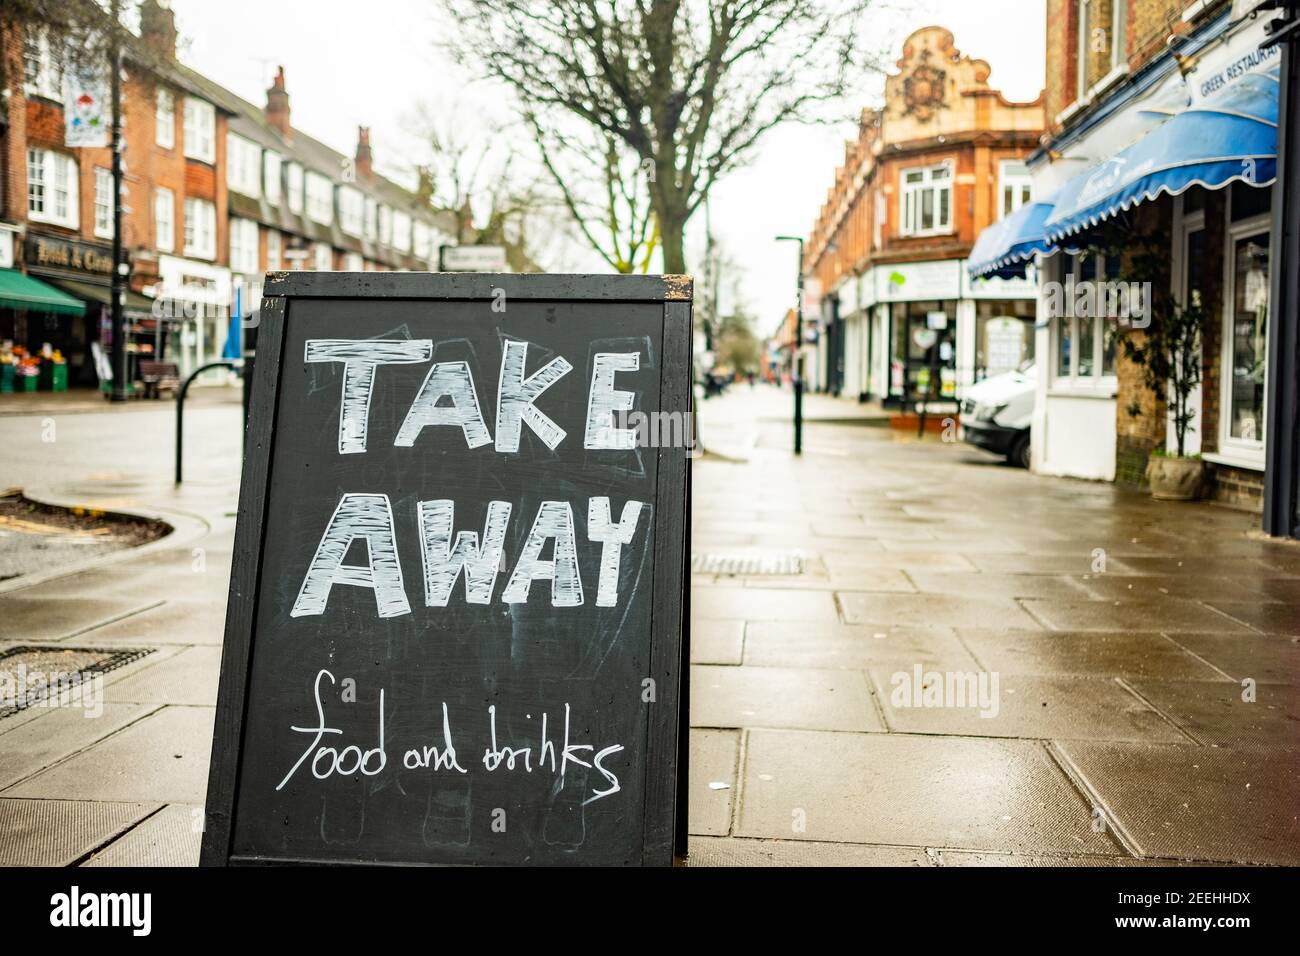 TAKE
AWAY
food and drinks
GREEK RESTAURAN
alamy
Image ID: 2EEHHDX
www.alamy.com